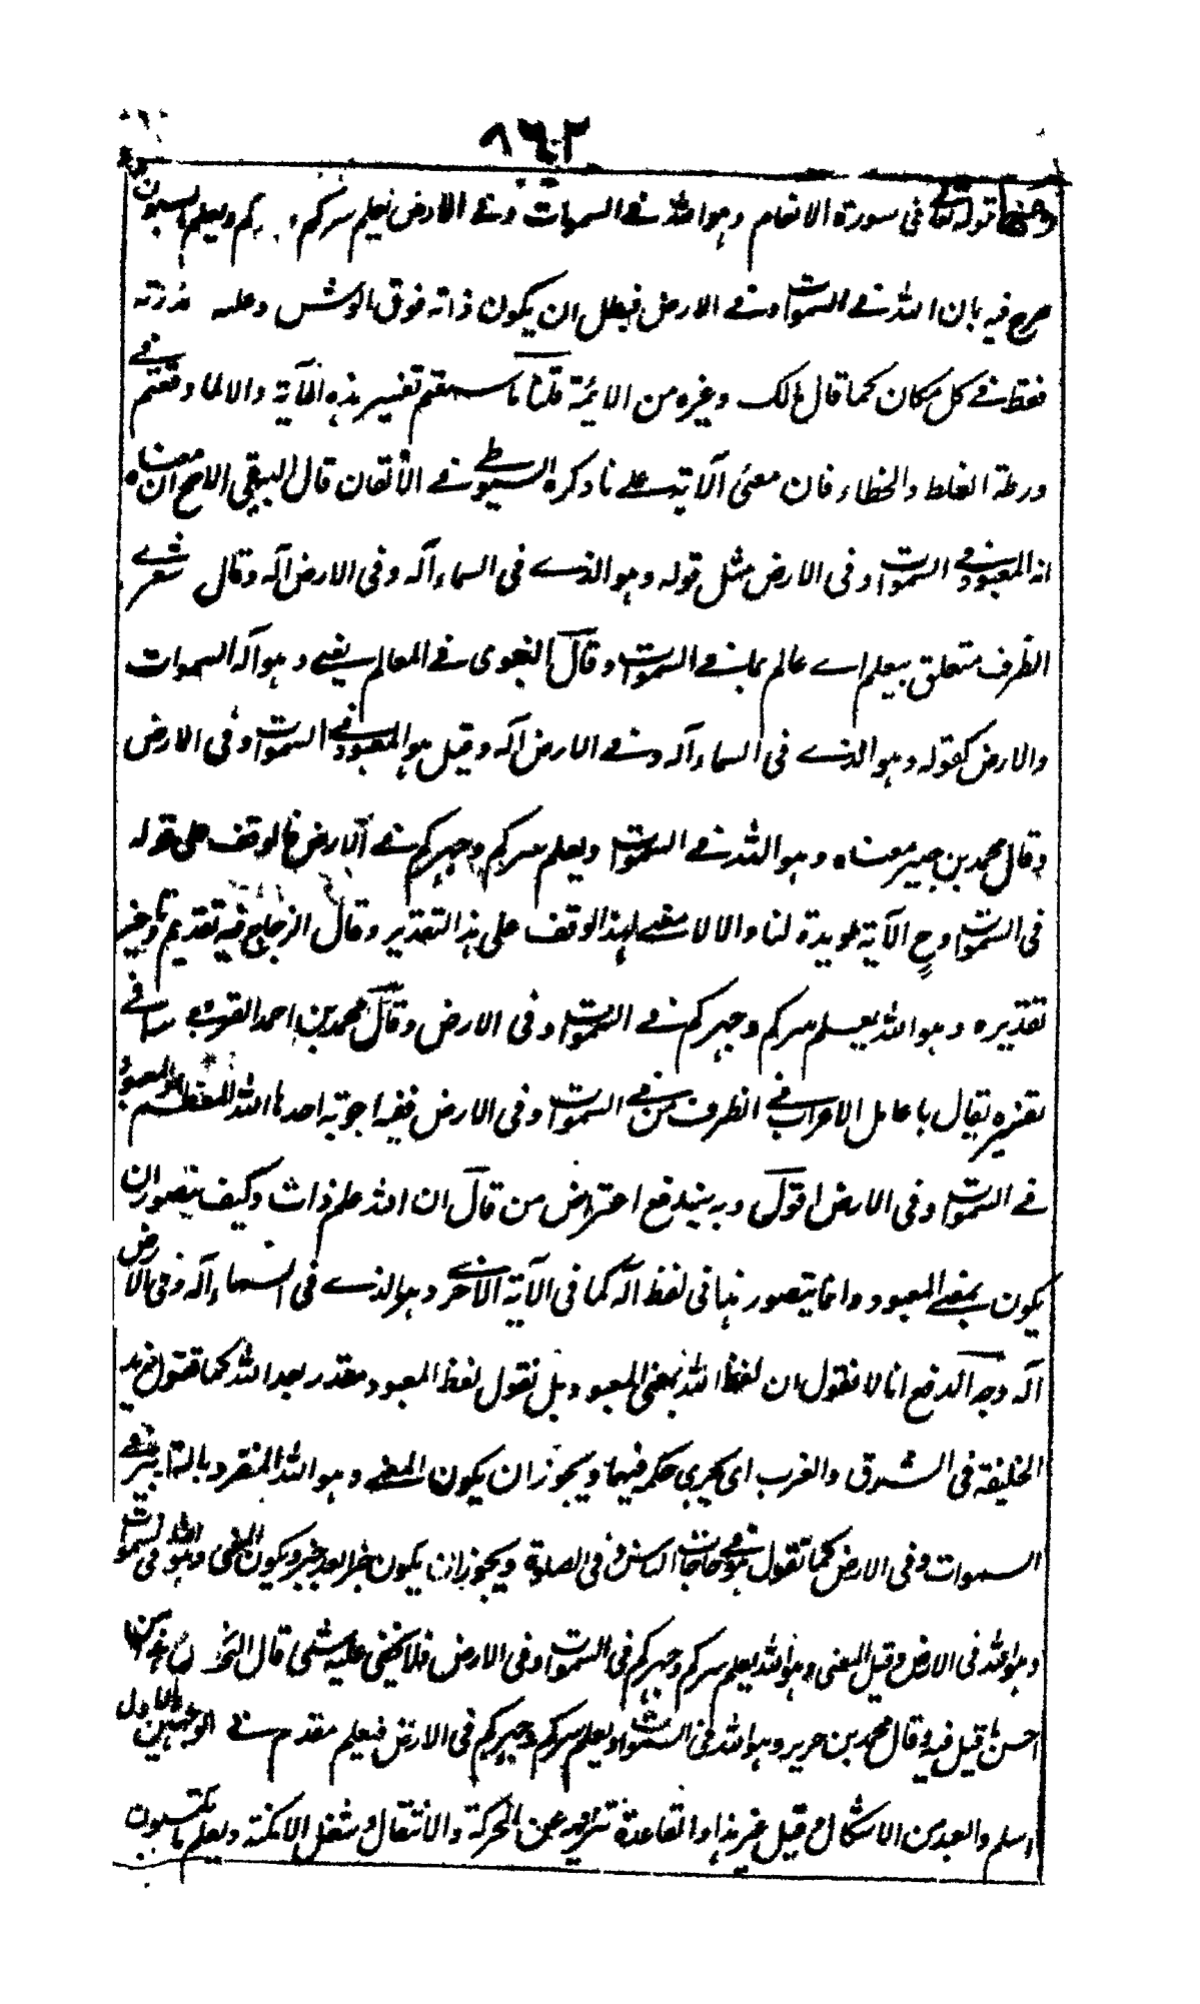 ٨٦٠٢
قوله تعالى فى سورة الانعام وهو الله فے السموات وفے الارض يعلم سركم وجهركم ويعلم ما تكسبون
صرح فيه بان الله فے السموات وفے الارض فبطل ان يكون ذاته فوق العرش وعلمه وقدرته
فقط فے كل مكان كما قال مالك وغيره من الائمة قلنا ما سمعتم تفسير هذه الآية والا لما وقعتم فے
ورطة الغلط والخطاء فان معنى الآية على ما ذكره السيوطے فے الاتقان قال البيهقى الاصح ان معناه
انه المعبود فے السموات وفى الارض مثل قوله وهو الذے فى السماء آله وفى الارض آله وقال اشعرے
الظرف متعلق بيعلم اے عالم بما فے السموات وقال البغوى فے المعالم يعنے وهو آله السموات
والارض كقوله وهو الذے فى السماء آله وفے الارض آله وقيل هو المعبود فے السموات وفى الارض
وقال محمد بن جرير معناه وهو الله فے السموات ويعلم سركم وجهركم فے الارض فالوقف على قوله
فى السموات وح الآية مويدة لنا والا لا معنے لهذا الوقف على هذا التقدير وقال الزجاج فيه تقديم وتاخير
تقديره وهو الله يعلم سركم وجهركم فے السموات وفى الارض وقال محمد بن احمد القرطبے فے
تفسيره يقال ما عامل الاعراب فے الظرف من فے السموات وفى الارض ففيه اجوبة احدها الله المعظم او المعبود
فے السموات وفى الارض اقول وبه يندفع اعتراض من قال ان الله علم ذات وكيف يتصور ان
يكون بمعنے المعبود وانما يتصور هذا فى لفظ آله كما فى الآية الاخرے وهو الذے فى السماء آله وفى الارض
آله وجه الدفع انا لا نقول ان لفظ الله بمعنى المعبود بل نقول لفظ المعبود مقدر بعد الله كما تقول زيد
الخليفة فى الشرق والغرب اى يجرى حكمه فيهما ويجوز ان يكون المعنے وهو الله المنفرد بالتدبير فے
السموات وفى الارض كما تقول هو فے حاجات الناس وفى الصلوة ويجوز ان يكون خبرا بعد خبر ويكون المعنى وهو الله فى السموات
وهو الله فى الارض وقيل المعنى وهو الله يعلم سركم وجهركم فى السموات وفى الارض فلا يخفى عليه شئى قال النحاس هذا من
احسن ما قيل فيه وقال محمد بن جرير وهو الله فى السموات ويعلم سركم وجهركم فى الارض فيعلم مقدم فے الوجهين والاول
اسلم وابعد من الاشكال وقيل غير هذا والقاعدة تنزيهه عن الحركة والانتقال وشغل الامكنة ويعلم ما تكسبون